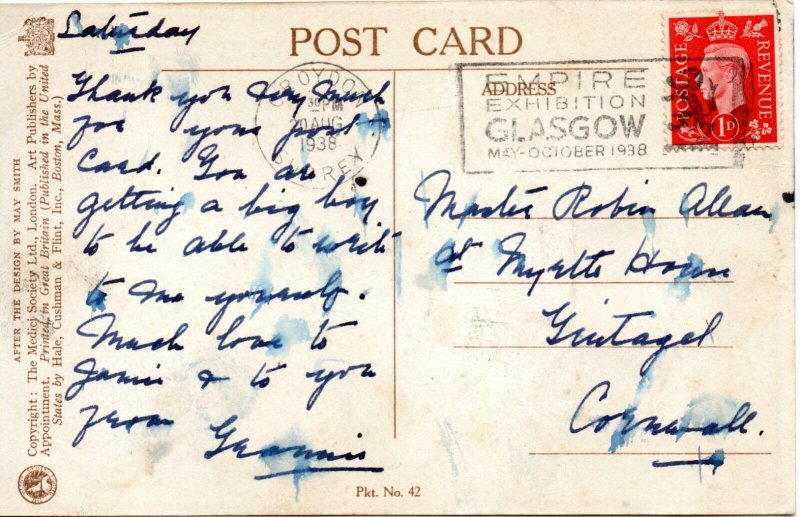 Saturday
POST CARD
Thank you very much
for your post-
card. You are
getting a big boy
to be able to write
to me yourself.
Much love to
Jamie & to you
from Grannie
CROYDON
30 PM
20 AUG
1938
SURREY
EMPIRE
EXHIBITION
GLASGOW
MAY-OCTOBER 1938
ADDRESS
POSTAGE
REVENUE
1D
Master Robin Allan,
at Myrtle House
Tintagel
Cornwall.
Pkt. No. 42
AFTER THE DESIGN BY MAY SMITH
Copyright: The Medici Society Ltd., London. Art Publishers by
Appointment. Printed in Great Britain (Published in the United
States by Hale, Cushman & Flint, Inc., Boston, Mass.)